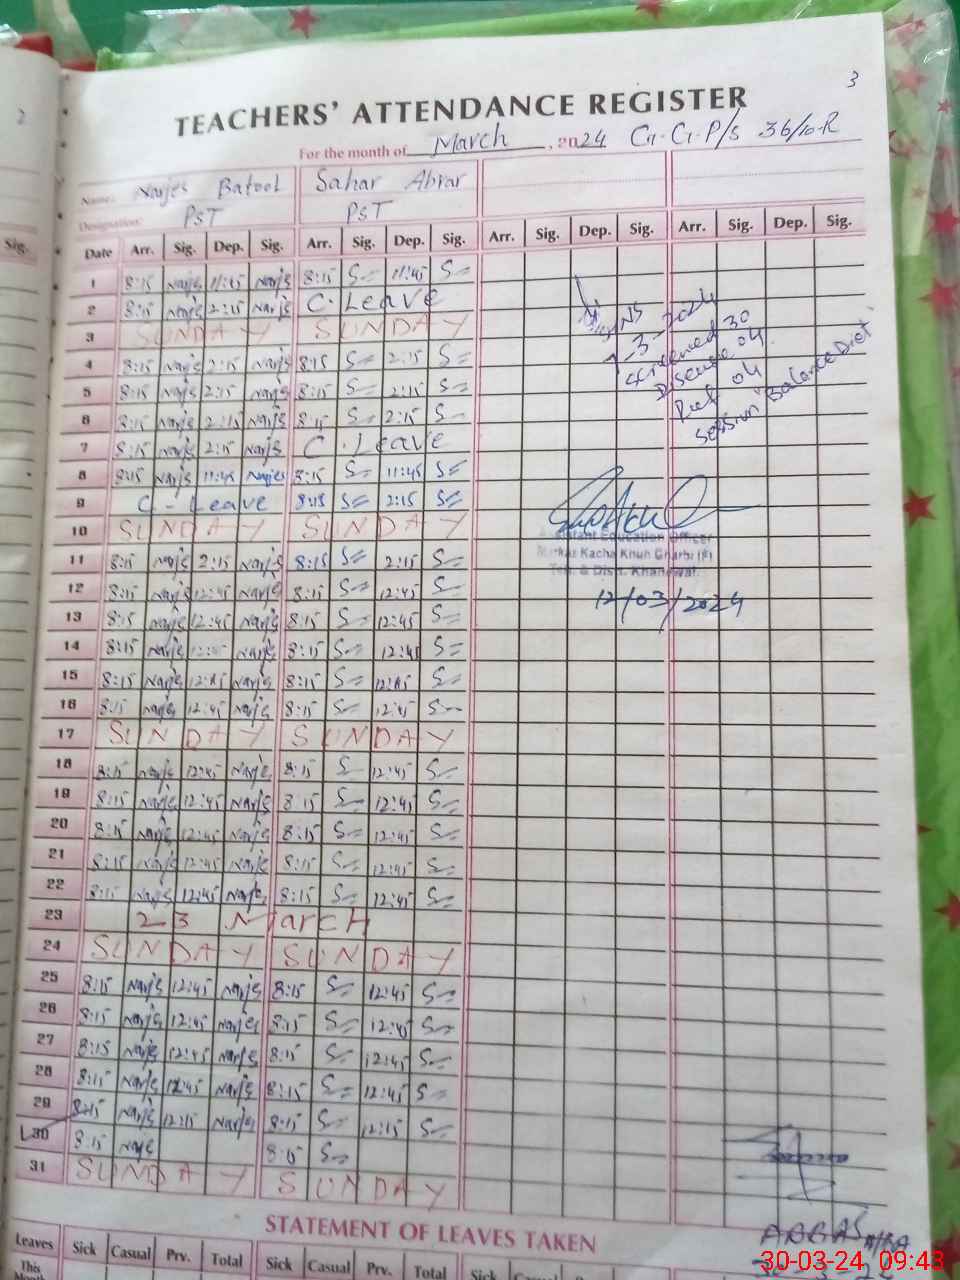 3
2
TEACHERS' ATTENDANCE REGISTER
For the month of March, 2024 G.G.P/s 36/10-R
Name: Narjes Batool Sahar Abrar
Designation: PST PST
Sig.
Date Arr. Sig. Dep. Sig. Arr. Sig. Dep. Sig. Arr. Sig. Dep. Sig. Arr. Sig. Dep. Sig.
1 8:15 Narjis 11:45 Narjis 8:15 S 11:45 S
2 8:15 Narjis 2:15 Narjis C. Leave
3 SUNDAY SUNDAY
4 8:15 Narjis 2:15 Narjis 8:15 S 2:15 S
5 8:15 Narjis 2:15 Narjis 8:15 S 2:15 S
6 8:15 Narjis 2:15 Narjis 8:15 S 2:15 S
7 8:15 Narjis 2:15 Narjis C. Leave
8 8:15 Narjis 11:45 Narjes 8:15 S 11:45 S
9 C- Leave 8:15 S 2:15 S
10 SUNDAY SUNDAY
11 8:15 Narjis 2:15 Narjis 8:15 S 2:15 S
12 8:15 Narjis 12:45 Narjis 8:15 S 12:45 S
13 8:15 Narjis 12:45 Narjis 8:15 S 12:45 S
14 8:15 Narjis Narjis 8:15 S 12:45 S
15 8:15 Narjis 12:45 Narjis 8:15 S 12:45 S
16 8:15 Narjis 12:45 Narjis 8:15 S 12:45 S
17 SUNDAY SUNDAY
18 8:15 Narjis 12:45 Narjis 8:15 S 12:45 S
19 8:15 Narjis 12:45 Narjis 8:15 S 12:45 S
20 8:15 Narjis 12:45 Narjis 8:15 S 12:45 S
21 8:15 Narjis 12:45 Narjis 8:15 S 12:45 S
22 8:15 Narjis 12:45 Narjis 8:15 S 12:45 S
23 23 March
24 SUNDAY SUNDAY
25 8:15 Narjis 12:45 Narjis 8:15 S 12:45 S
26 8:15 Narjis 12:45 Narjis 8:15 S 12:45 S
27 8:15 Narjis 12:45 Narjis 8:15 S 12:45 S
28 8:15 Narjis 12:45 Narjis 8:15 S 12:45 S
29 8:15 Narjis 12:15 Narjis 8:15 S 12:15 S
30 8:15 Narjis 8:15 S
31 SUNDAY SUNDAY
SHNS
7-3-2024
Screened 30
Disease 04
Ref 04
Session "Balance Diet"
Assistant Education Officer
Markaz Kacha Khuh Gharbi (F)
Teh. & Distt. Khanewal.
12/03/2024
ABBAS
STATEMENT OF LEAVES TAKEN
Leaves Sick Casual Prv. Total Sick Casual Prv. Total Sick
This
Month
30-03-24, 09:43